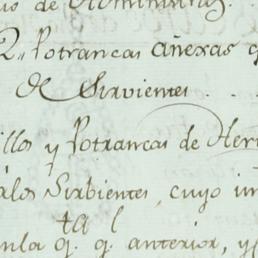 de
2,, Potrancas añexas
de Sirvientes . .
illos y Potrancas de Her
á los Sirbientes, cuyo im
ta l
q. q. anterior, y